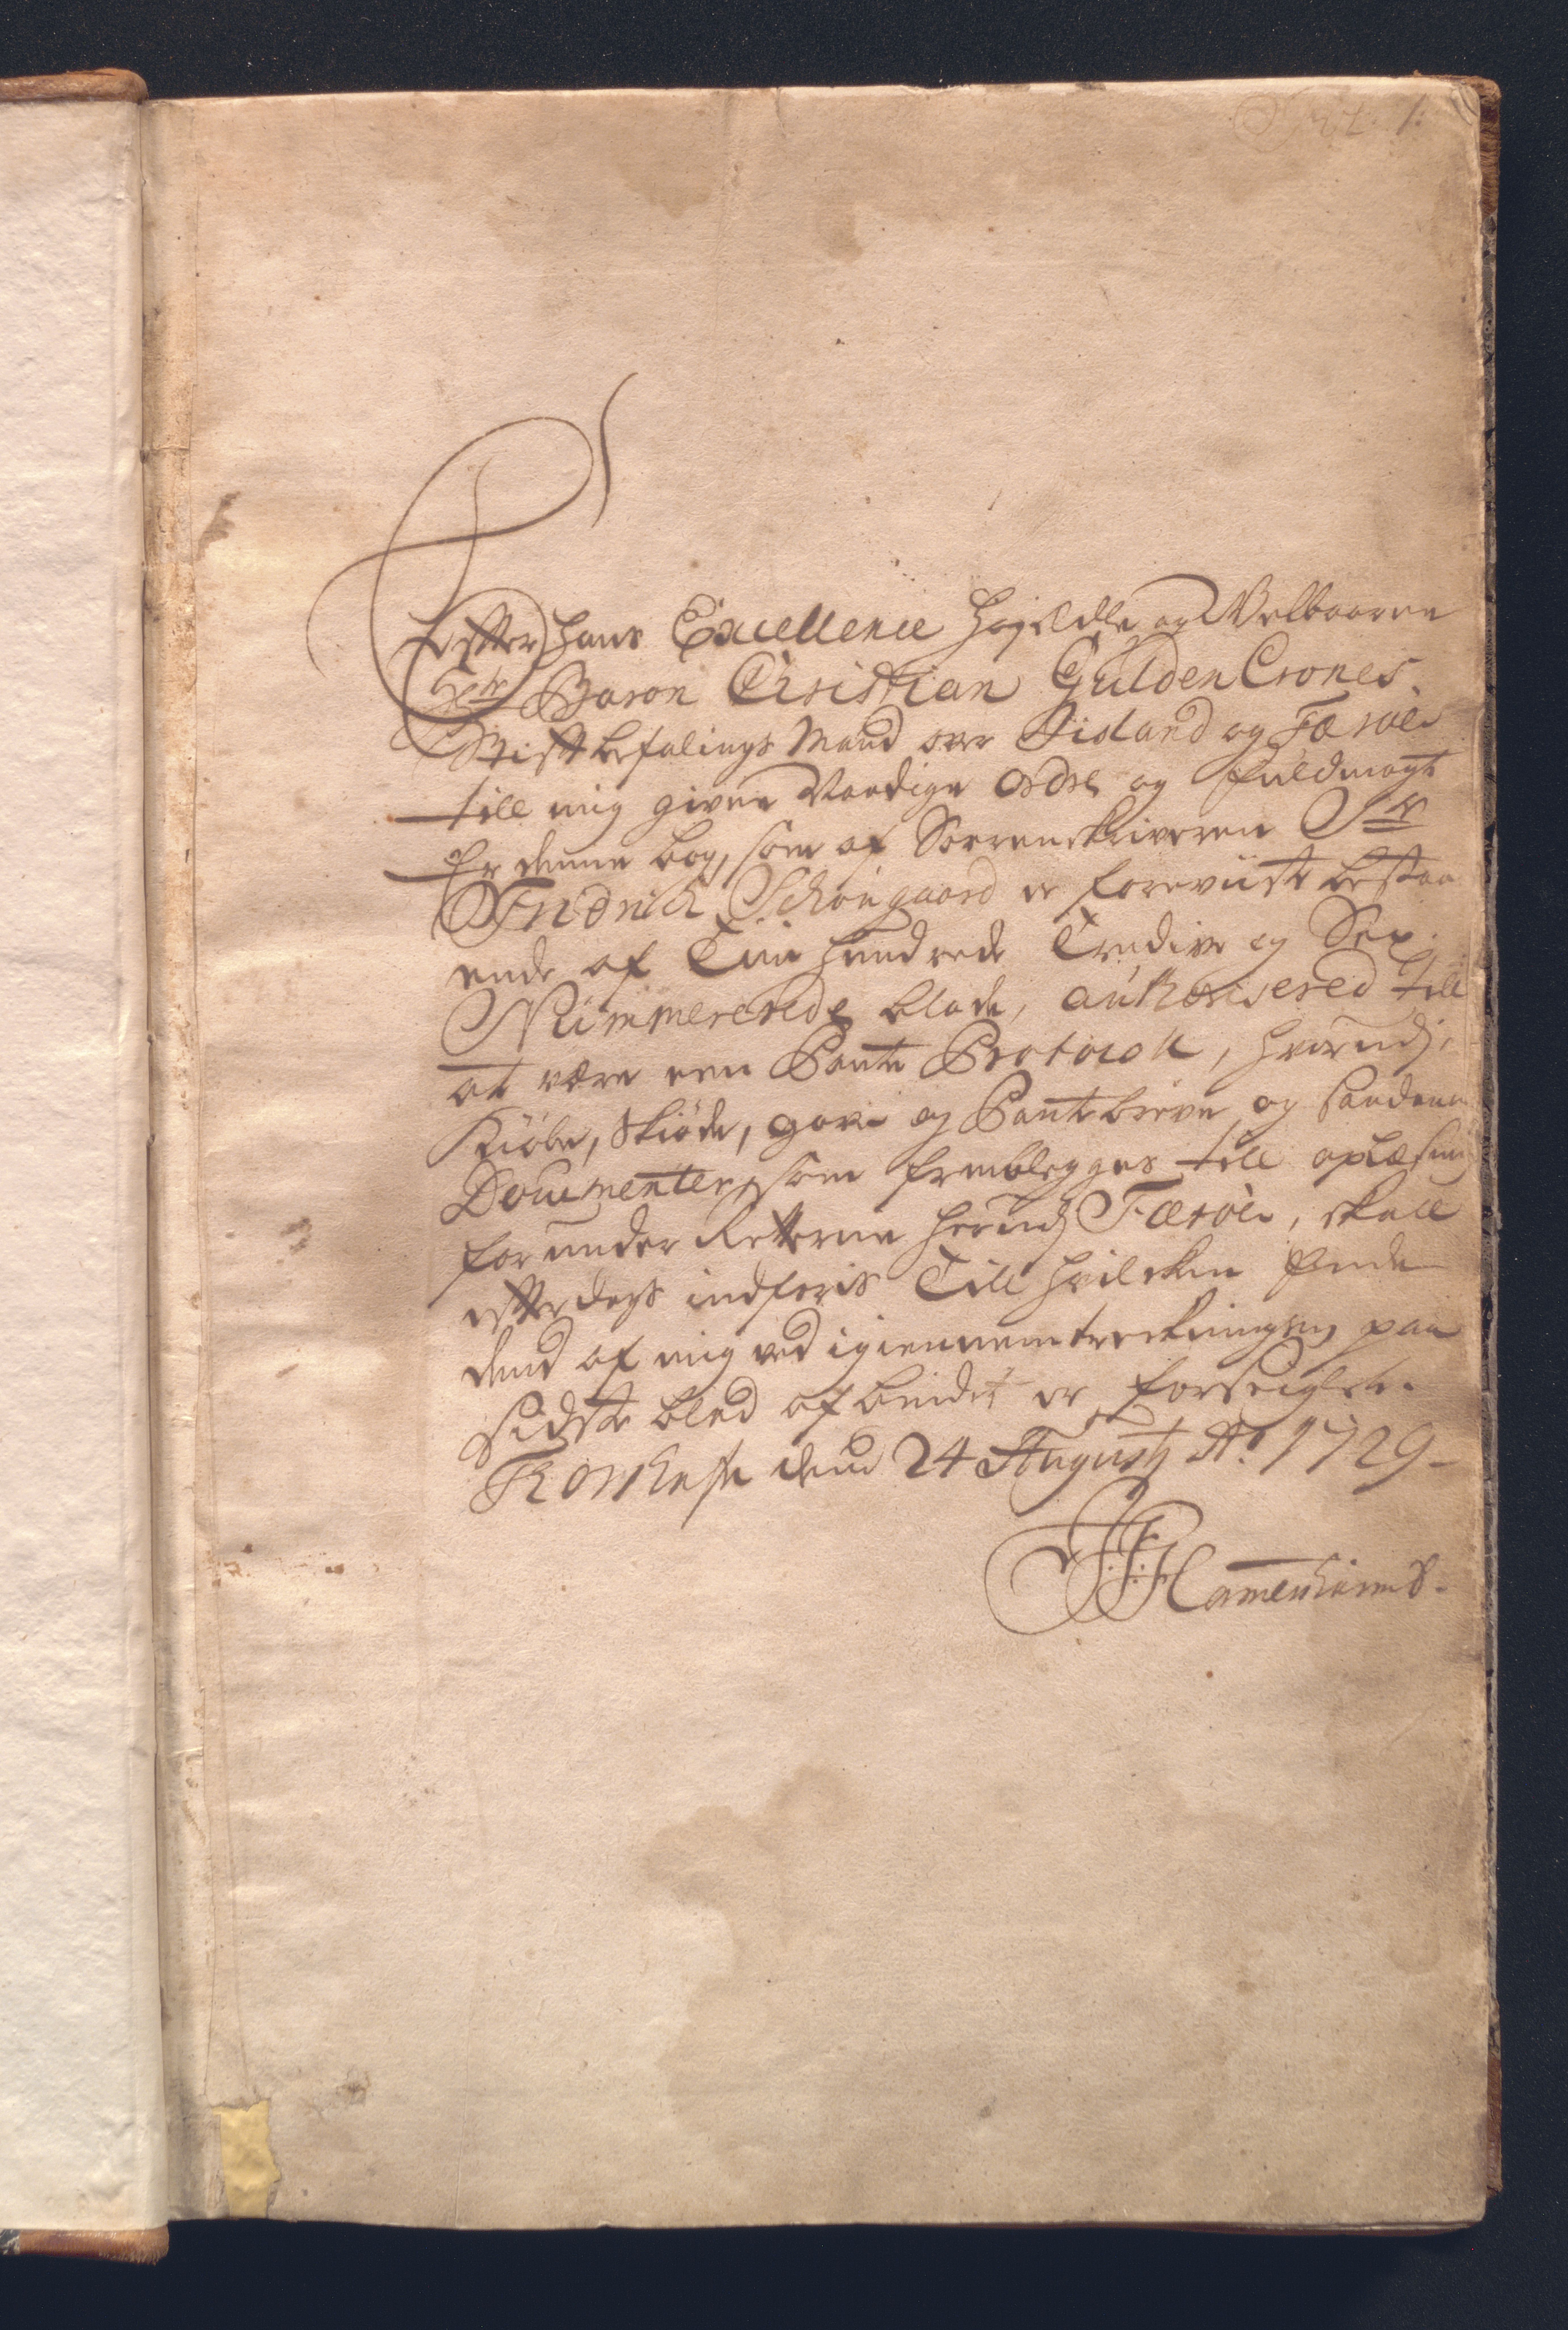 1.
Efter hans Excellence Højædle og Velbaaren
Hr Baron Christian GüldenCrones
Stiftbefalings Mand over Iisland og Færöe
till mig given Naadige Ordre og fuldmagt
Er denne bog, som af Sorrenskriveren Sr
Fridrich Schöngaard er foreviist bestaa
ende af Tiu hundrede Tredive og Sex
Nümmererede blade, authorisered till
at være een Pante Protocoll, hvorudj
Kiöbe, Skiöde, gave og Pantebreve og saadane
Documenter, som fremblegges till oplæsning
for under Retterne herudj Færöe, skall
efterdags indføris Till hvilcken Ende
dend af mig ved igiennemtreckningen paa
sidste blad af bundet er forseiglet.
Thorshafn dend 24 Augustj Ao 1729